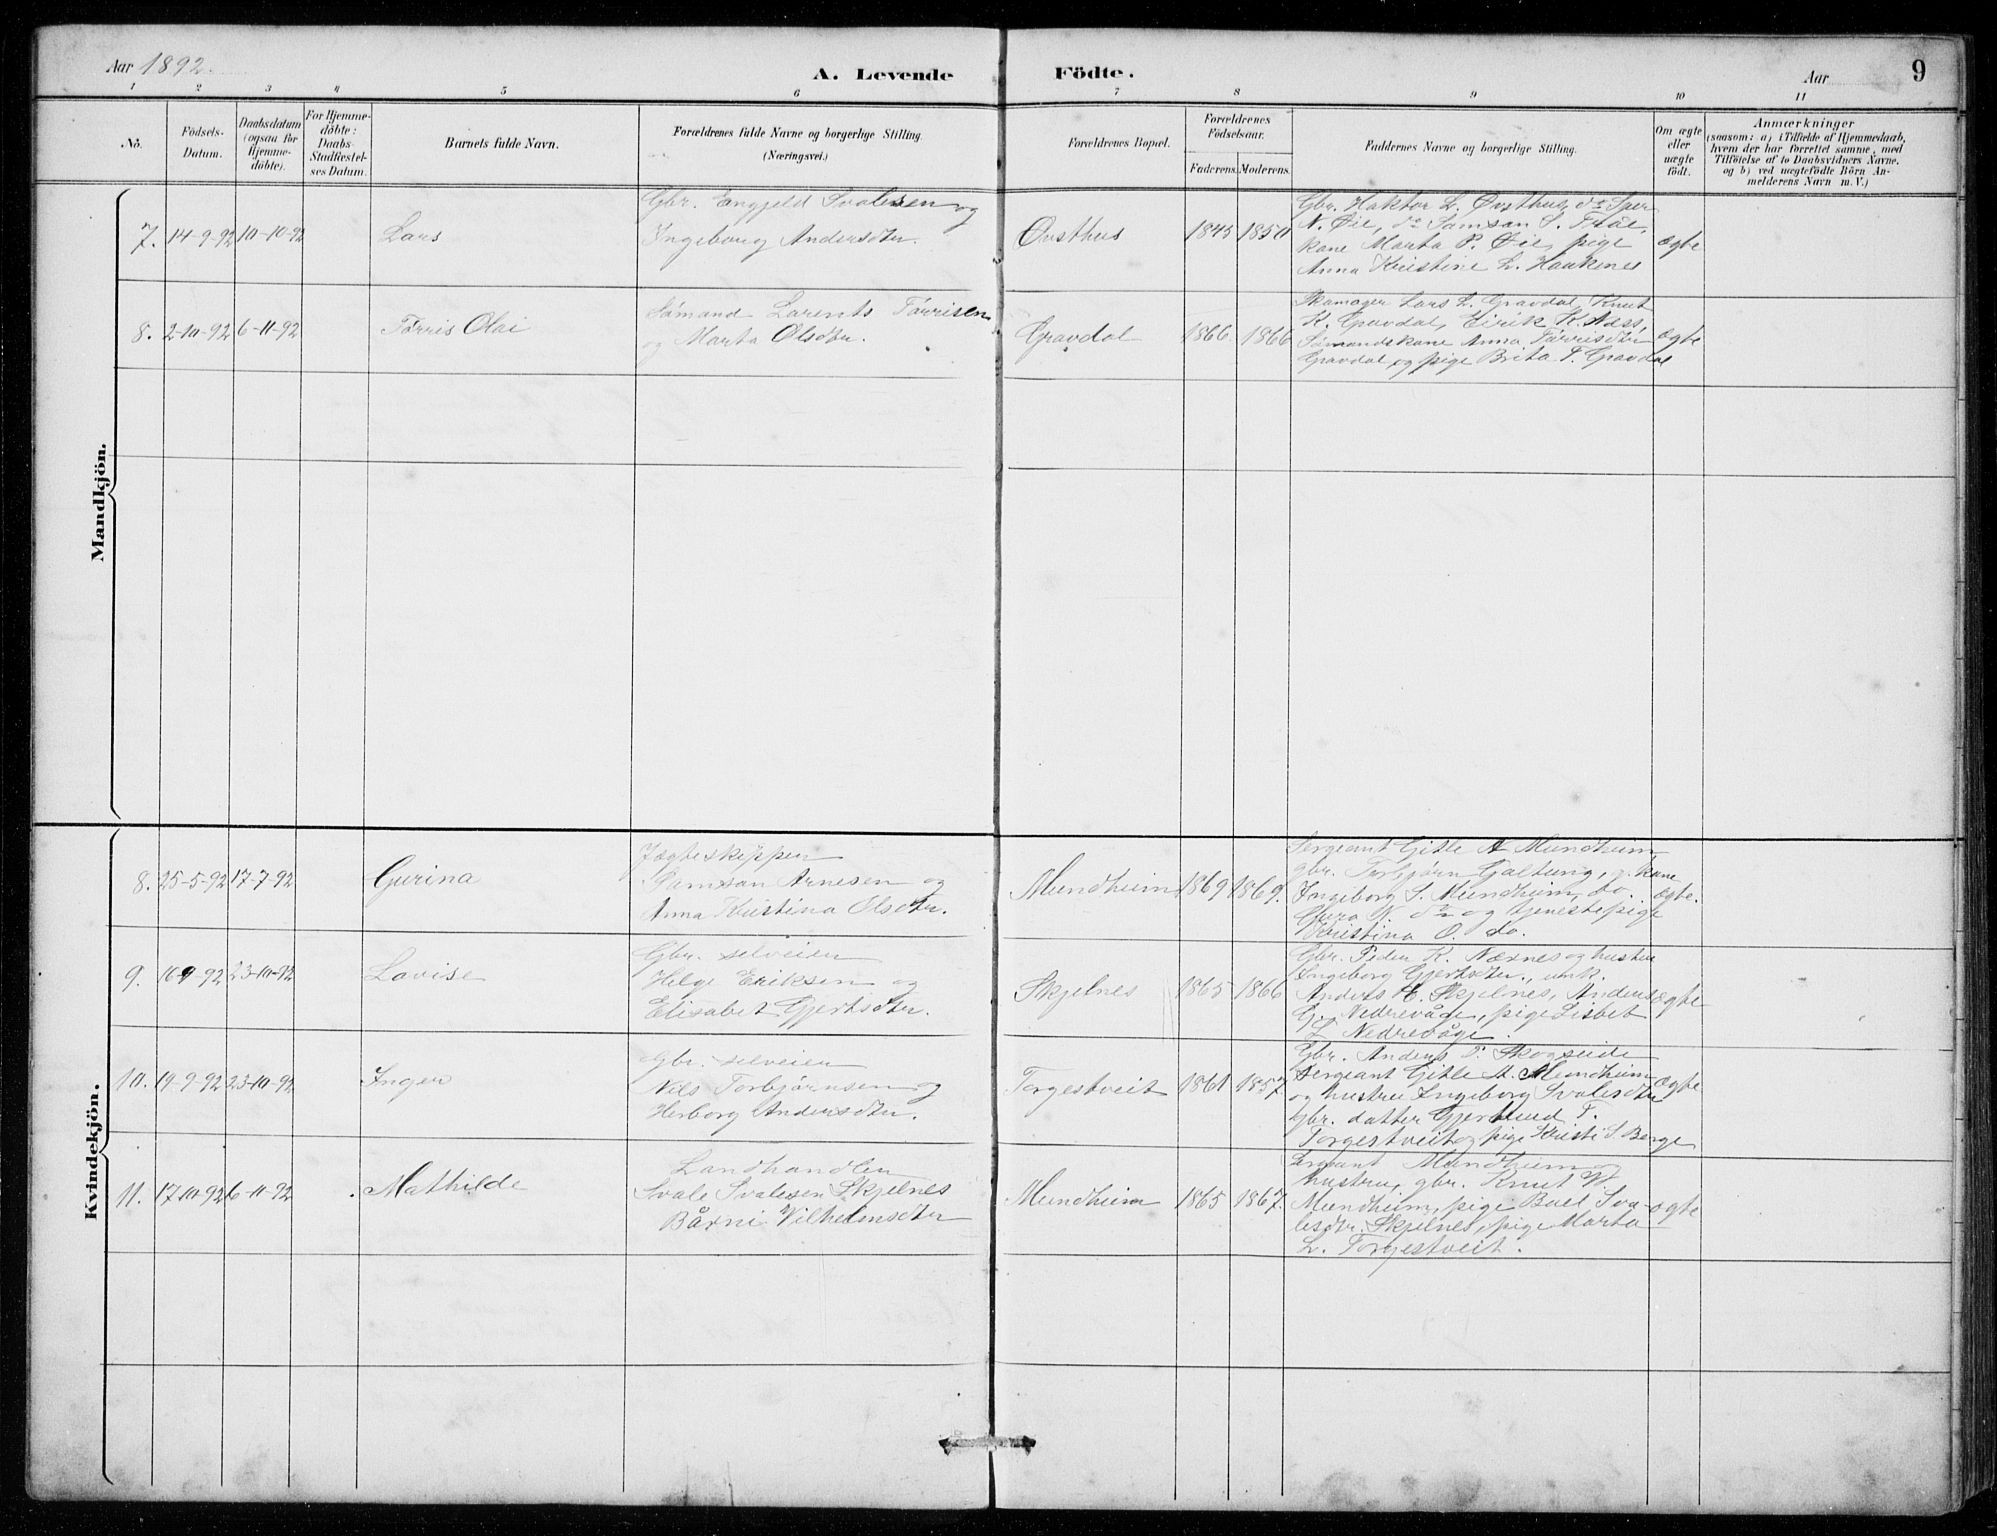 Aar 1892.
A. Levende Födte.
Aar
9
1 2 3 4 5 6 7 8 9 10 11
No.
Födsels-
Datum.
Daabsdatum
(ogsaa for
Hjemme-
döbte).
For Hjemme-
döbte:
Daabs-
Stadfæstel-
ses Datum.
Barnets fulde Navn.
Forældrenes fulde Navne og borgerlige Stilling.
(Næringsvei.)
Forældrenes Bopæl.
Forældrenes
Födselsaar.
Faderens. Moderens.
Faddernes Navne og borgerlige Stilling.
Om ægte
eller
uægte
födt.
Anmærkninger
(saasom: a) i Tilfælde af Hjemmedaab,
hvem der har forrettet samme, med
Tilföielse af to Daabsvidners Navne.
og b) ved uægtefödte Börn An-
melderens Navn m. V.)
Mandkjön.
7. 14-9-92 10-10-92
Lars
Gbr. Engjeld Svalesen og
Ingeborg Andersdtr.
Øvsthus
1845 1850
Gbr. Haktor L. Øvsthus, do Sjur
N. Øie, do Samson S.
kone Marta P. Øie, pige
Anna Kristine L. Haukenes
ægte
8. 2-10-92 6-11-92
Tørris Olai
Sømand Larents Tørrisen
og Marta Olsdtr.
Gravdal
1866. 1866
Skomager Lars L. Gravdal, Knut
K. Gravdal, Eirik K.
Sømandskone Anna Tørrisdtr
Gravdal, og pige Brita T. Gravdal
ægte
Kvindekjön.
8. 25-5-92 17-7-92
Gurina
Jægteskipper
Samson Arnesen og
Anna Kristina Olsdtr.
Mundheim
1869 1869.
Sergeant Gitle A Mundheim
gbr. Torbjørn Galtung, kone
Ingeborg S. Mundheim, do.
Gura N. do og tjenestepige
Kristina O. do.
ægte.
9. 16-9-92 23-10-92
Lovise
Gbr. selveier
Helge Eriksen og
Elisabet Gjertsdtr.
Skjelnes
1865 1866
Gbr. Peder K. Nærnes og hustru
Ingeborg Gjertsdtr., umk.
Anders H. Skjelnes, Anders
G. Nedrevåge, pige Lisbet
L. Nedrevåge.
ægte
10. 19-9-92 23-10-92
Inger
Gbr. selveier
Nils Torbjørnsen og
Herborg Andersdtr.
Torgestveit
1861 1857.
Gbr. Anders T. Skogseide
Sergeant Gitle A. Mundheim
og hustru Ingeborg Svalesdtr
Gbr. datter Gjertrud T.
Torgestveit og pige Kristi S. Berge
ægte
11. 17-10-92 6-11-92
Mathilde
Landhandler
Svale Svalesen Skjelnes
Bårni Vilhelmsdtr
Mundheim
1865 1867.
Sergeant Mundheim og
hustru, gbr. Knut W.
Mundheim, pige Boel Sva-
lesdtr. Skjelnes, pige Marta
L. Torgestveit.
ægte